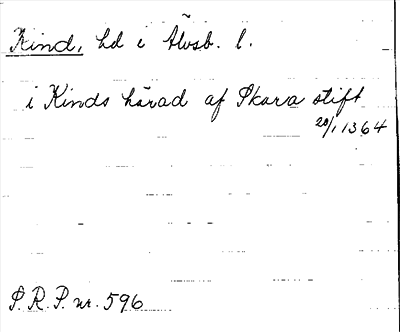 Kind, hd i Älvsb. l.
i Kinds härad af Skara stift
20/1 1364
P. R. P. nr. 596